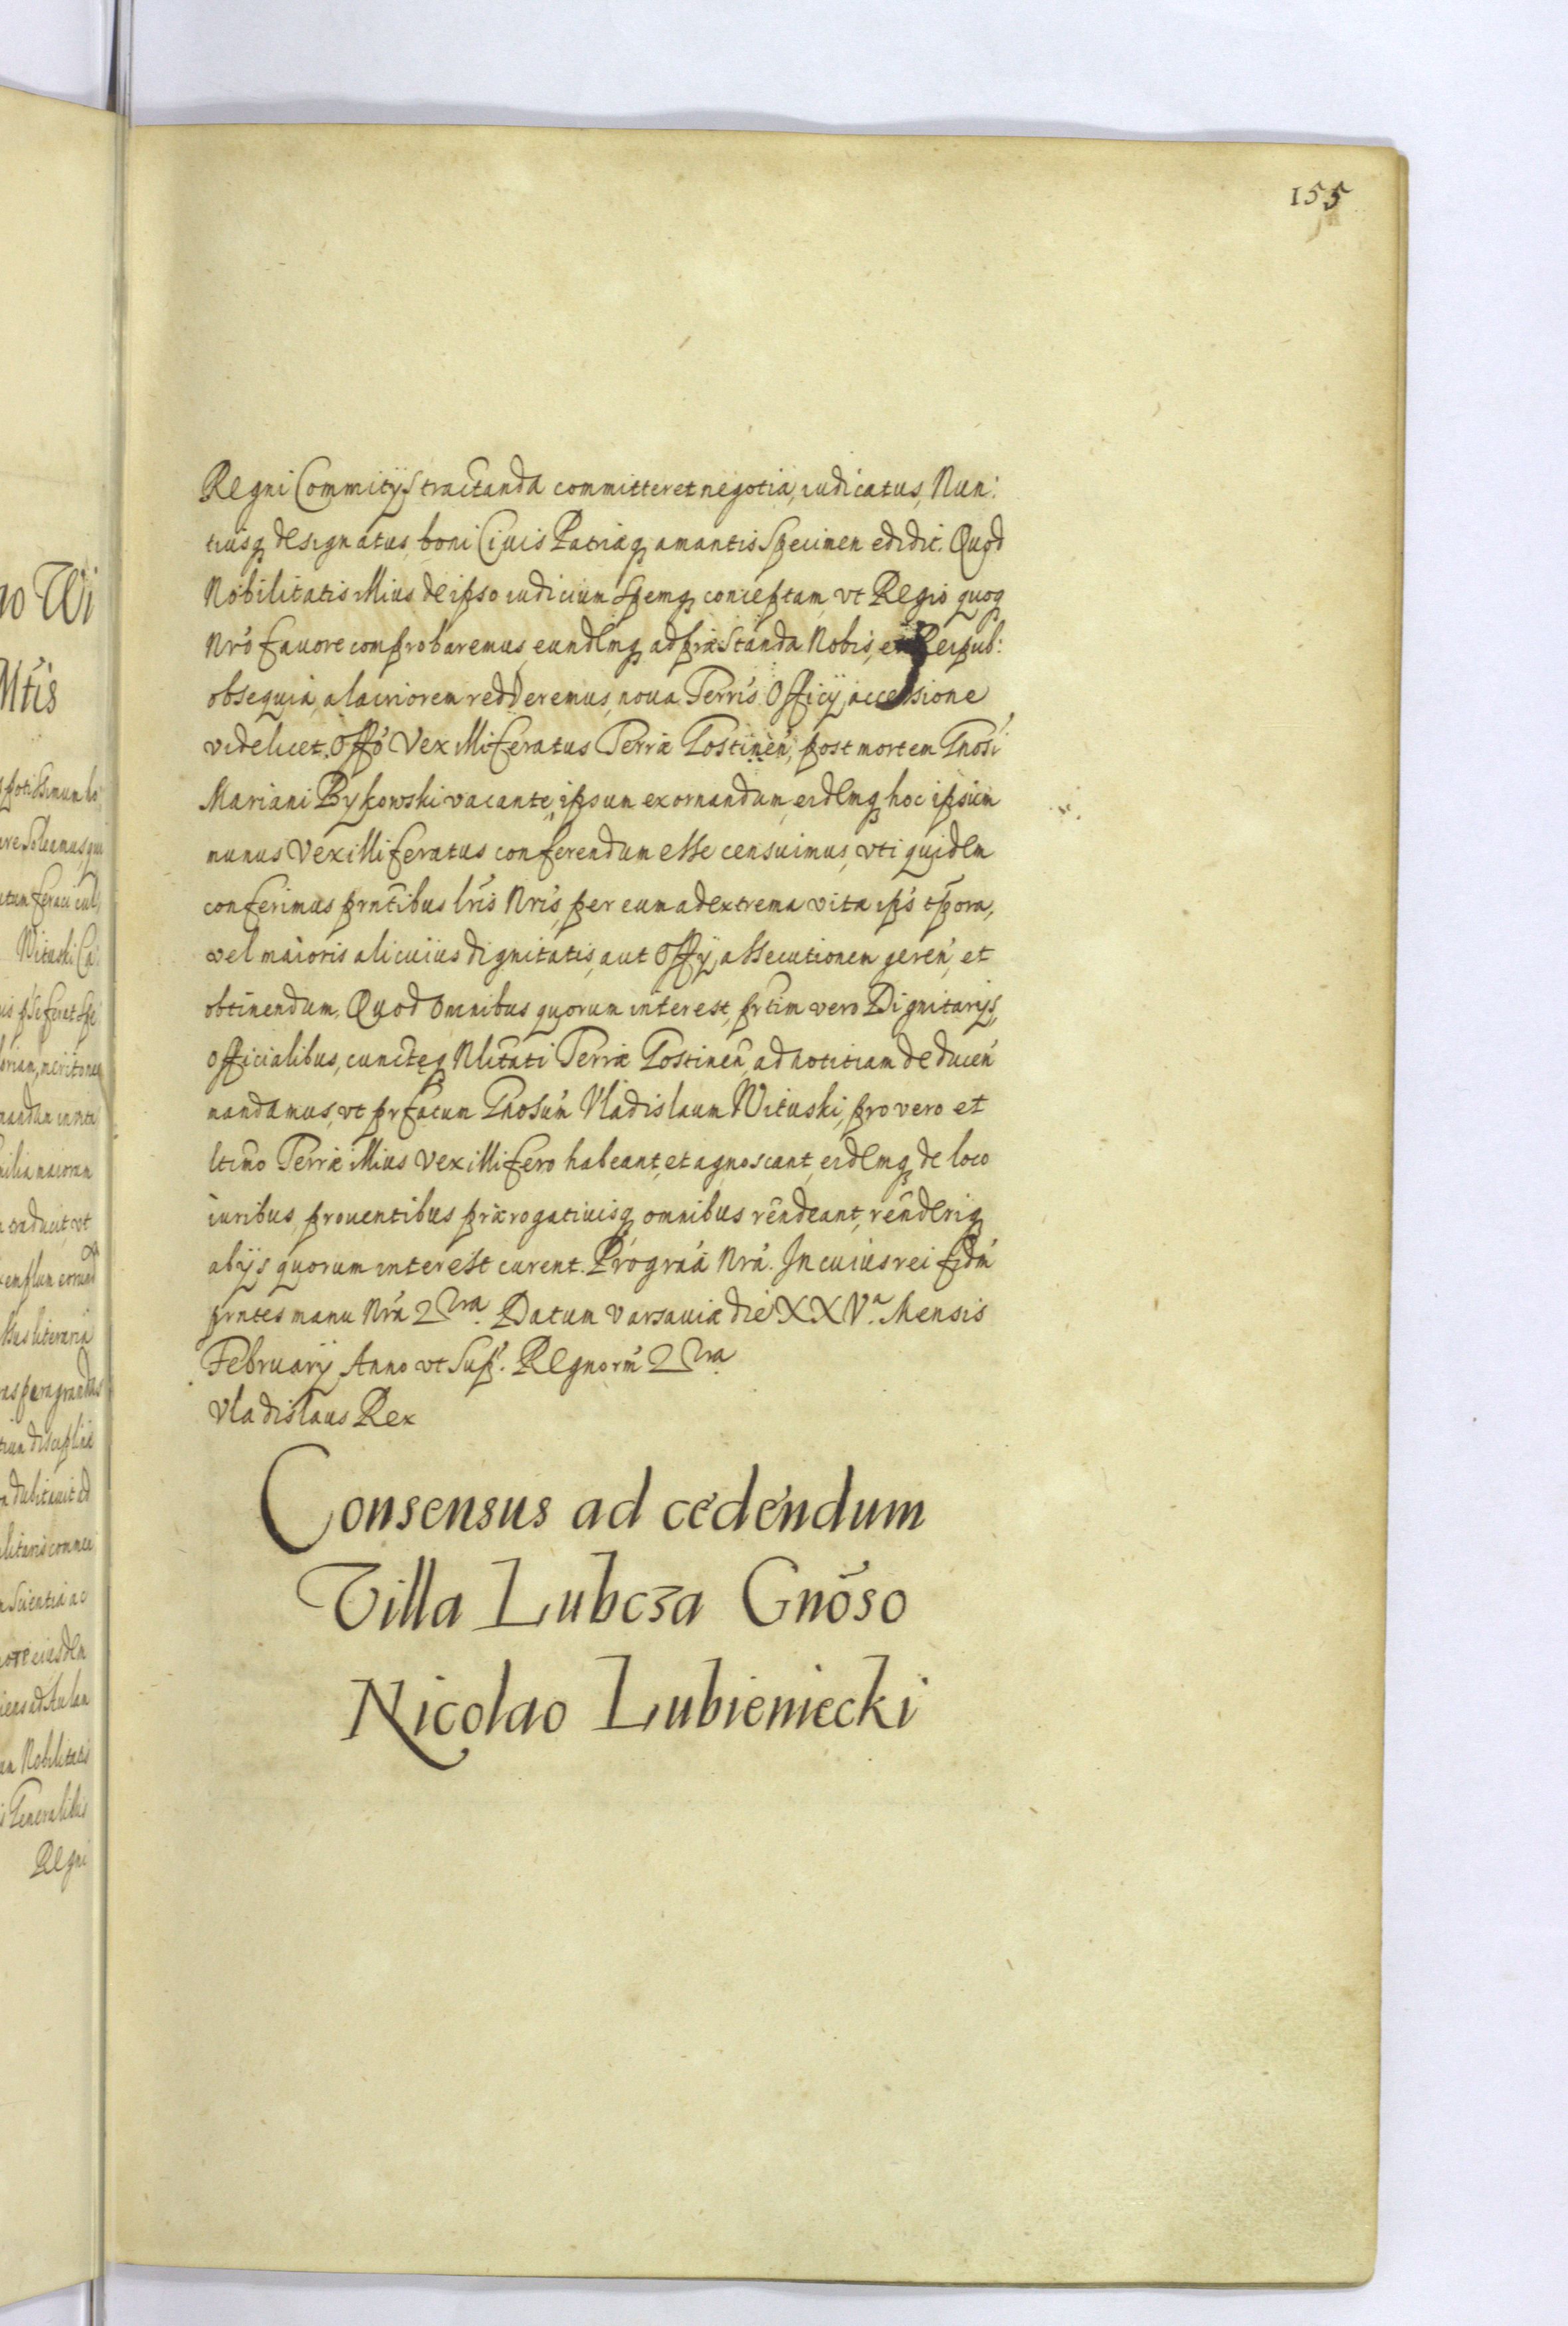 155
Regni Commitÿs tractanda committeret negotia, iudicatus, Nun:
tiusq designatus, boni Civis Patriæq amantis specimen edidit. Quod
Nobilitatis illius de ipso iudicium spemq conceptam, vt Regio quoq
Nro favore comprobaremus, eundemq ad præstanda Nobis, et Reipub:
obsequia, alacriorem redderemus, noua Terris Officÿ accessione
videlicet, Offo Vexilliferatus Terræ Gostinen, post mortem Gnosi
Mariani Bykowski vacante, ipsum exornandum, eidemq hoc ipsum
munus Vexilliferatus conferendum esse censuimus, vti quidem
conferimus prntibus lris Nris, per eum ad extrema vitæ ips tpora,
vel maioris alicuius dignitatis, aut Offÿ, assecutionem geren, et
obtinendum. Quod omnibus quorum interest, prtim vero Dignitarÿs,
Officialibus, cunctæq Nlitati Terræ Gostinen, ad notitiam deducen
mandamus, vt prfatum Gnosum Vladislaum Wituski, pro vero et
ltimo Terræ illius Vexillifero habeant, et agnoscant, eidemq de loco
iuribus, prouentibus prærogatiuisq omnibus rendeant, renderiq
abÿs quorum interest curent. Pro gra Nra. In cuius rei fidm
prntes manu Nra 2 Datum Varsauiæ die XXVa. Mensis
Februarÿ Anno vt Supr. Regnorm 2
Vladislaus Rex
Consensus ad cedendum
Villa Lubcza Gnoso
Nicolao Lubieniecki
no Wi
Mtis
Wituski
Nobilitatis
Generalibus
Regni